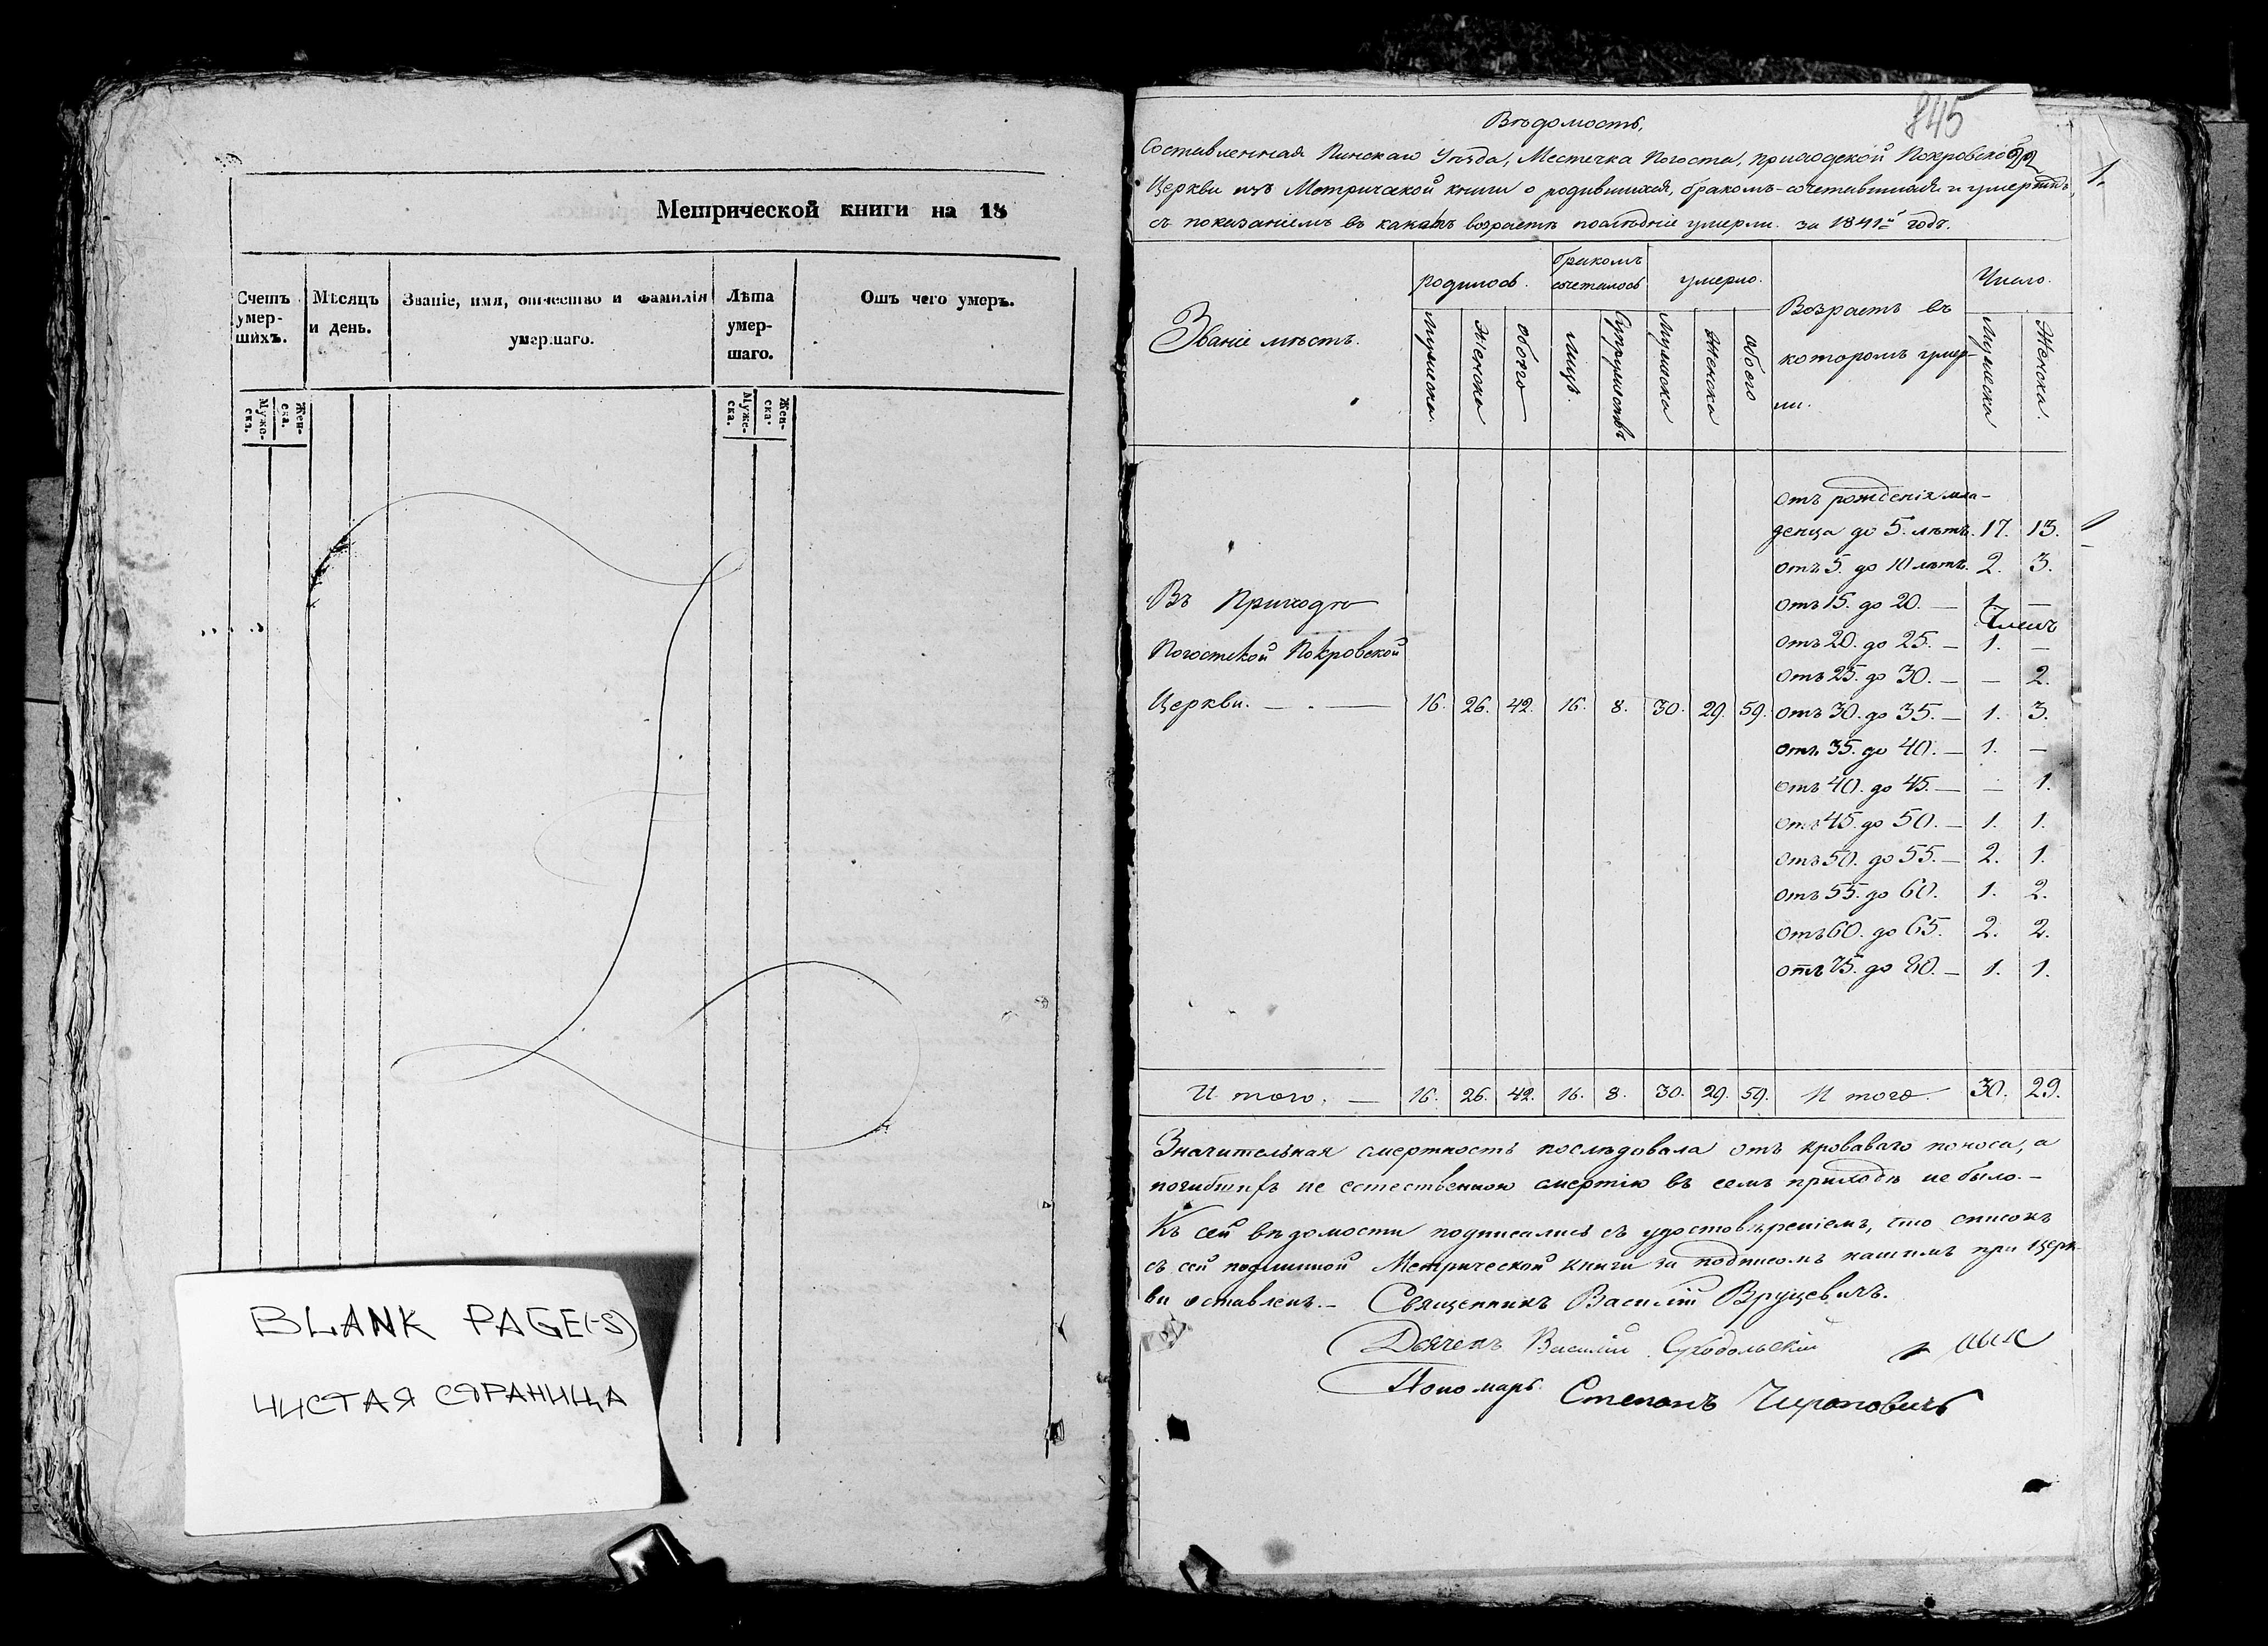 Метрической книги на 18
Счетъ умер-шихъ.
Мѣсяцъ и день.
Званіе, имя, отчество и фамилія умершаго.
Лѣта умер-шаго.
Отъ чего умеръ.
Муже-ска.
Жен-ска.
Муже-ска.
Жен-ска.
BLANK PAGE(-S)
ЧИСТАЯ СТРАНИЦА
845
1.
Вѣдомость,
Составленная Пинскаго Уѣзда, Местечка Погоста, приходской Покровской
Церкви изъ Метрической книги о родившихся, бракомъ-сочетавшихся и умершихъ,
съ показаніемъ въ какихъ возрастѣ послѣдніе умерли. за 1841й годъ.
Званіе мѣстъ.
родилось.
Мужеска.
Женска
обоего
бракомъ сочеталось
Лицъ.
Супружествъ
умерло.
Мужеска
Женска
обоего
Возрастъ въ
которомъ умер-
ли.
Число.
Мужеска
Женска.
отъ рожденія мла-
денца до 5. лѣтъ. 17. 13.
отъ 5. до 10 лѣтъ. 2. 3.
Въ Приходѣ
отъ 15. до 20. — 1. —
Погостской Покровской
отъ 20. до 25. — 1. —
отъ 25. до 30. — — 2.
Церкви. — . — 16. 26. 42. 16. 8. 30. 29. 59. отъ 30. до 35. — 1. 3.
отъ 35. до 40. — 1. —
отъ 40. до 45. — — 1.
отъ 45. до 50. — 1. 1.
отъ 50. до 55. — 2. 1.
отъ 55. до 60. 1. 2.
отъ 60. до 65. 2. 2.
отъ 75. до 80. — 1. 1.
И того. — 16. 26. 42. 16. 8. 30. 29. 59. И того. 30. 29.
Значительная смертность послѣдовала отъ кроваваго поноса, а
погибшихъ не естественною смертію въ семъ приходѣ не было. —
Къ сей вѣдомости подписались съ удостовѣреніемъ, что списокъ
съ сей подлинной Метрической книги за подписомъ нашимъ при церк-
ви оставленъ. — Священникъ Василій Вруцевичъ.
Дьячекъ Василій Сходольскій
Пономарь Степанъ